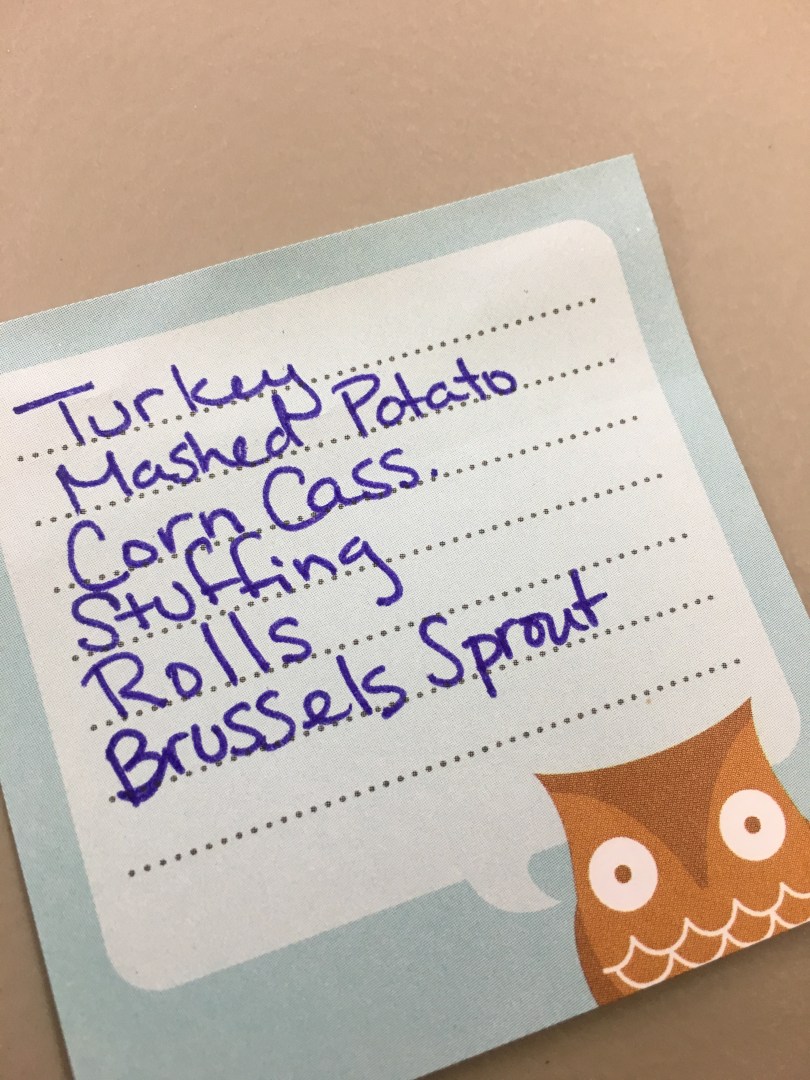 Turkey
Mashed Potato
Corn Cass.
Stuffing
Rolls
Brussels Sprout